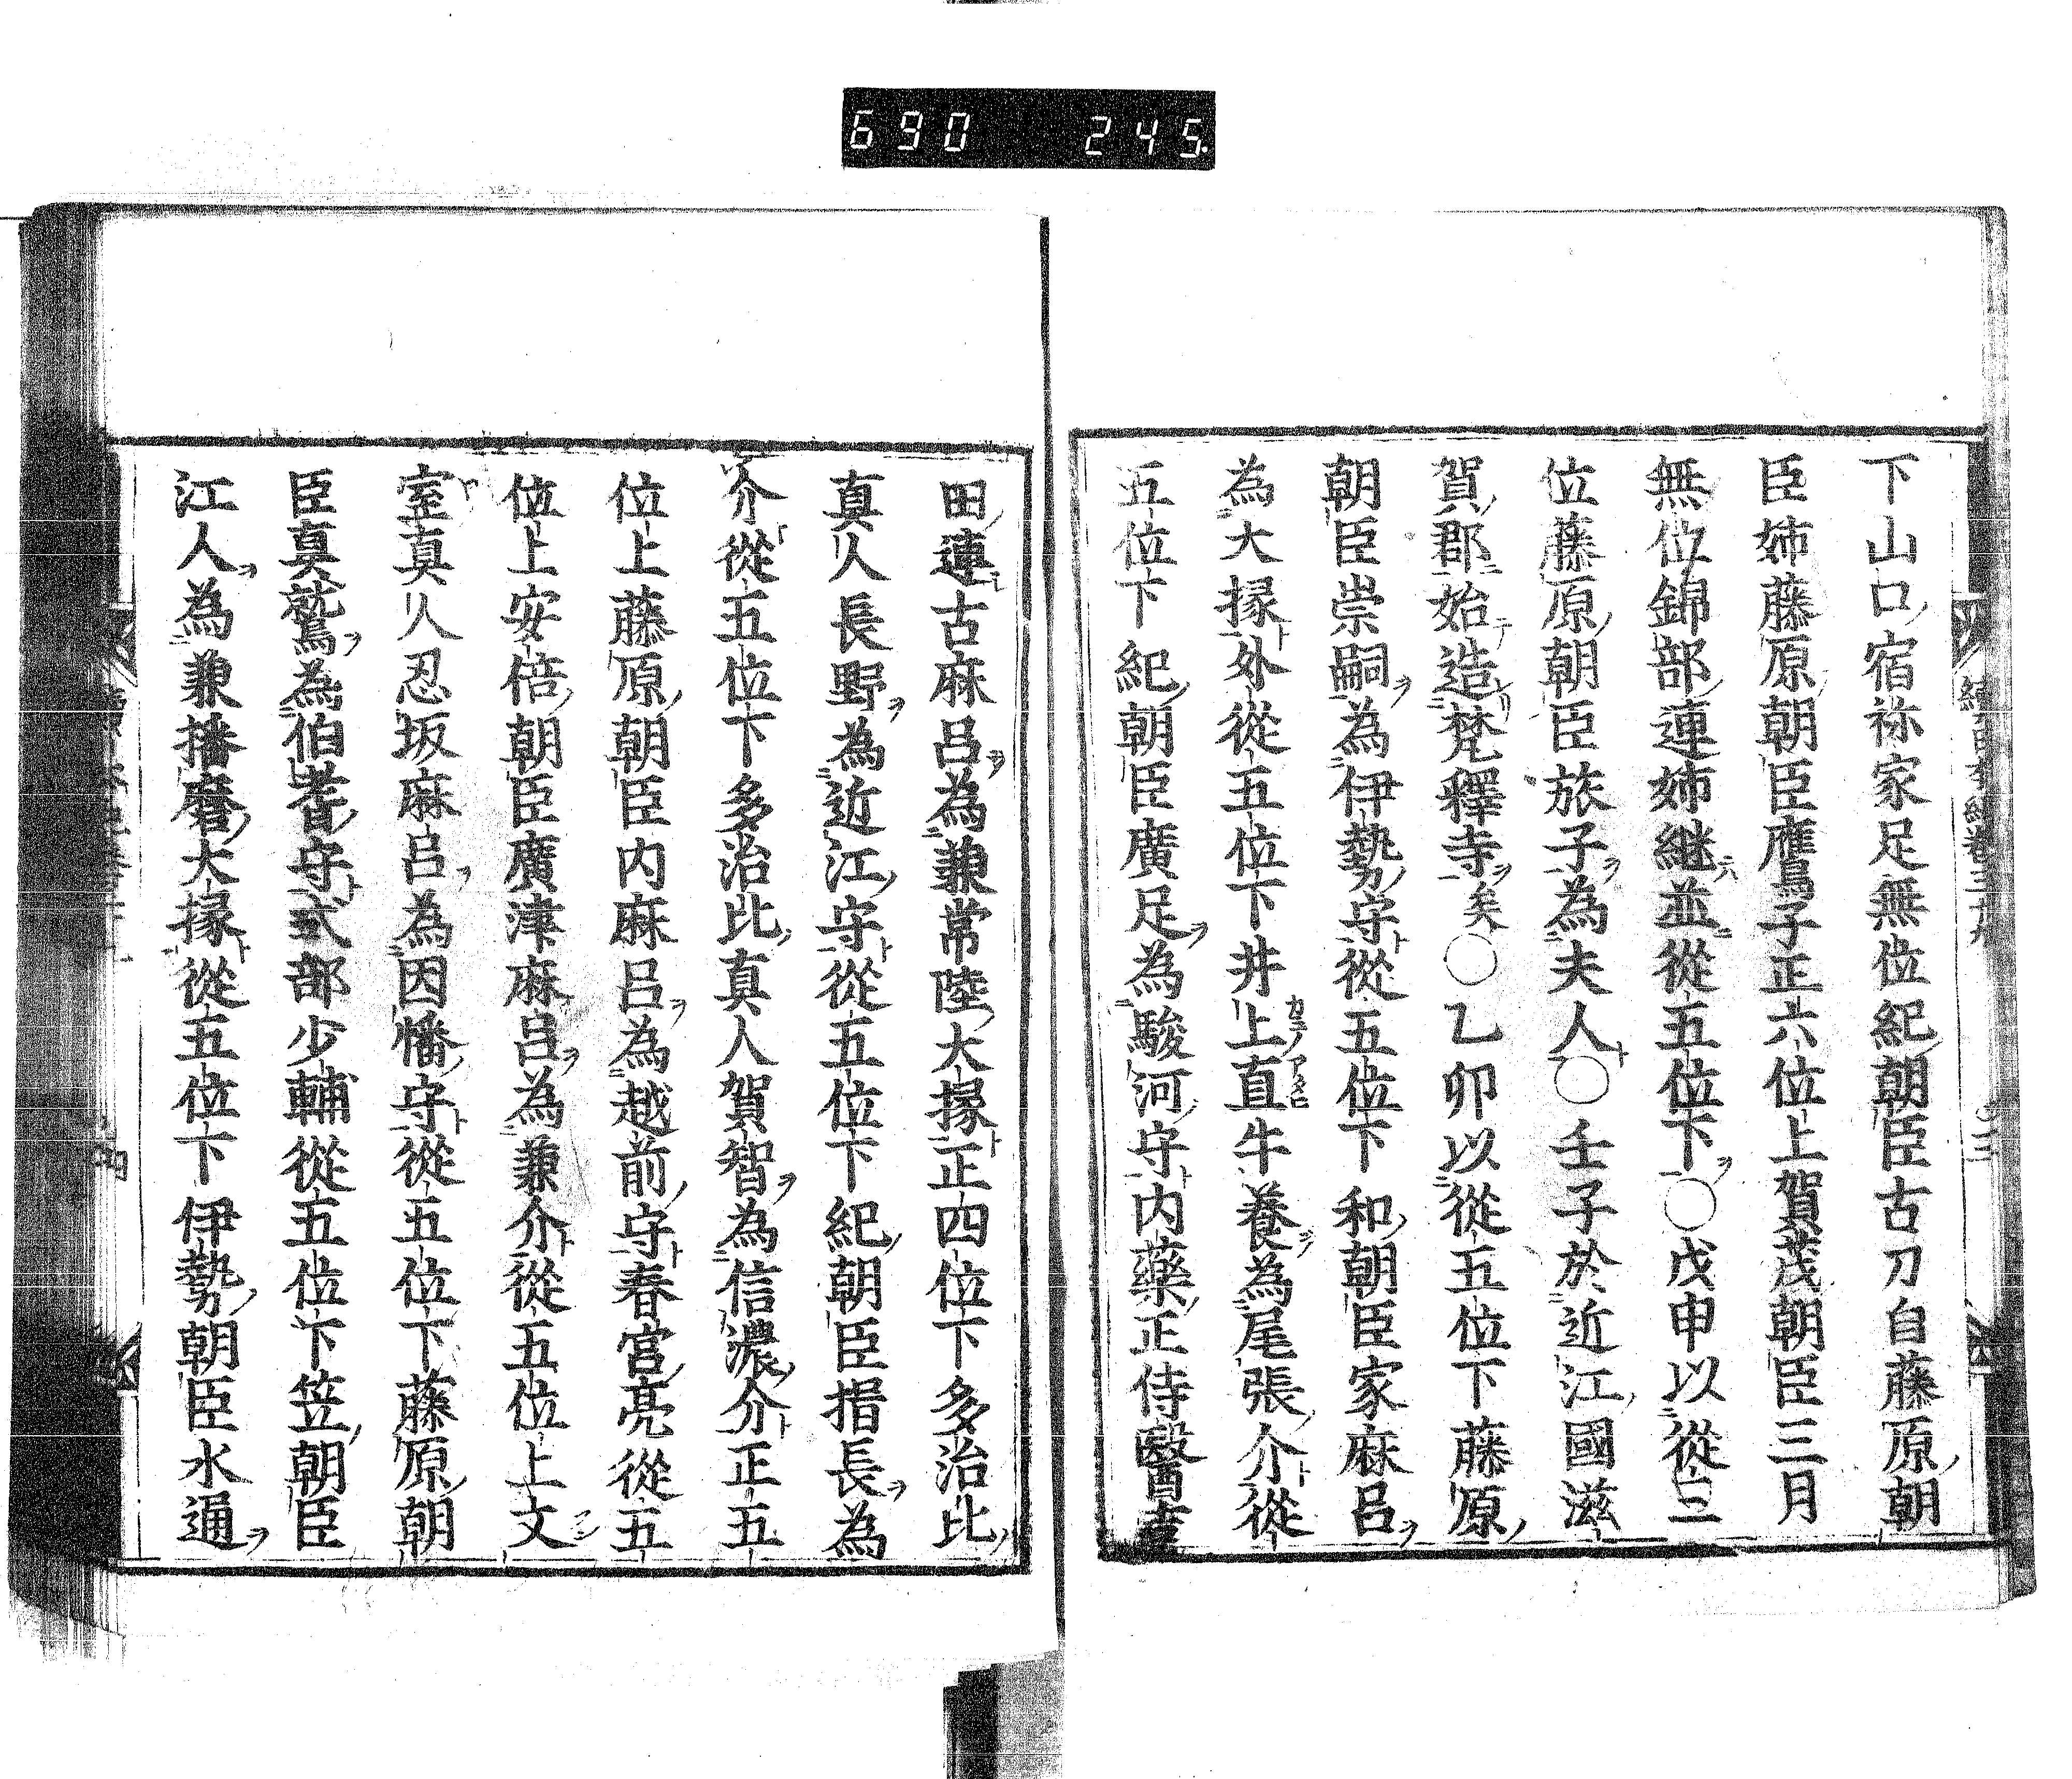 690 245
下山口宿祢家足無位紀朝臣古刀自藤原朝
臣姉藤原朝臣鷹子正六位上賀茂朝臣三月
無位錦部連姉継並從五位下○戊申以從三
位藤原朝臣旅子為夫人○壬子於近江國滋
賀郡始造梵釋寺矣○乙卯以從五位下藤原
朝臣崇嗣為伊勢守從五位下和朝臣家麻呂
為大掾外從五位下井上直牛養為尾張介從
五位下紀朝臣廣足為駿河守内藥正侍醫吉
田連古麻呂為兼常陸大掾正四位下多治比
真人長野為近江守從五位下紀朝臣揩長為
介從五位下多治比真人賀智為信濃介正五
位上藤原朝臣内麻呂為越前守春宮亮從五
位上安倍朝臣廣津麻呂為兼介從五位上文
室真人忍坂麻呂為因幡守從五位下藤原朝
臣真鷲為伯耆守式部少輔從五位下笠朝臣
江人為兼播磨大掾從五位下伊勢朝臣水通